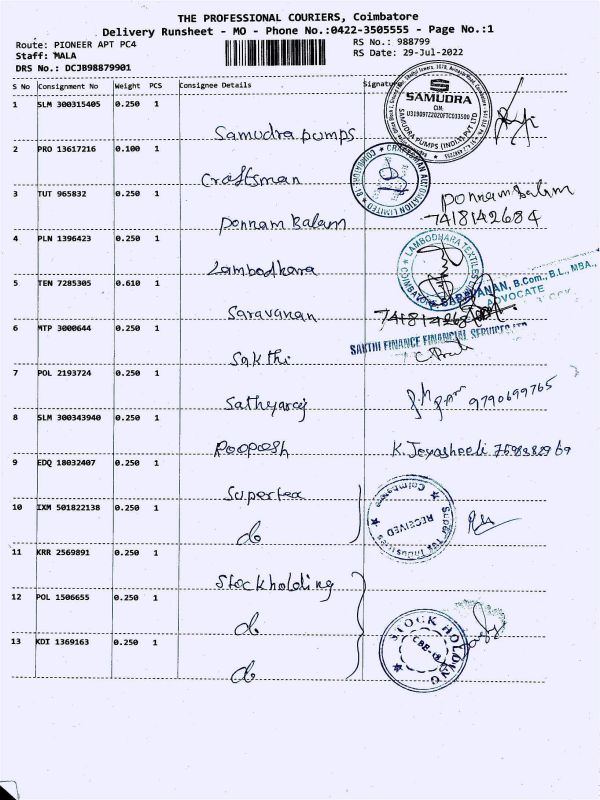 THE PROFESSIONAL COURIERS, Coimbatore
Delivery Runsheet - MO - Phone No.:0422-3505555 - Page No.:1
Route: PIONEER APT PC4
RS No.: 988799
Staff: MALA
RS Date: 29-Jul-2022
DRS No.: DCJB98879901
S No Consignment No Weight PCS Consignee Details Signature
1 SLM 300315405 0.250 1
Samudra pumps
SAMUDRA
CIN:
SAMUDRA PUMPS (INDIA) PVT LTD
2 PRO 13617216 0.100 1
Craftsman
CRAFTSMAN AUTOMATION LIMITED
3 TUT 965832 0.250 1
Ponnambalam
Ponnambalam
7418142684
4 PLN 1396423 0.250 1
Lambodhara
LAMBODHARA TEXTILES
5 TEN 7285305 0.610 1
Saravanan
SARAVANAN, B.Com., B.L., MBA.,
ADVOCATE
6 MTP 3000644 0.250 1
Sakthi
SAKTHI FINANCE FINANCIAL SERVICES LTD
7 POL 2193724 0.250 1
Sathyaraj
9790699765
8 SLM 300343940 0.250 1
Poopesh
K. Jeyasheeli
9 EDQ 18032407 0.250 1
Supertex
10 IXM 501822138 0.250 1
do
Super Tex Industries
RECEIVED
Coimbatore
11 KRR 2569891 0.250 1
Stockholding
12 POL 1506655 0.250 1
do
13 KDI 1369163 0.250 1
do
STOCK HOLDING